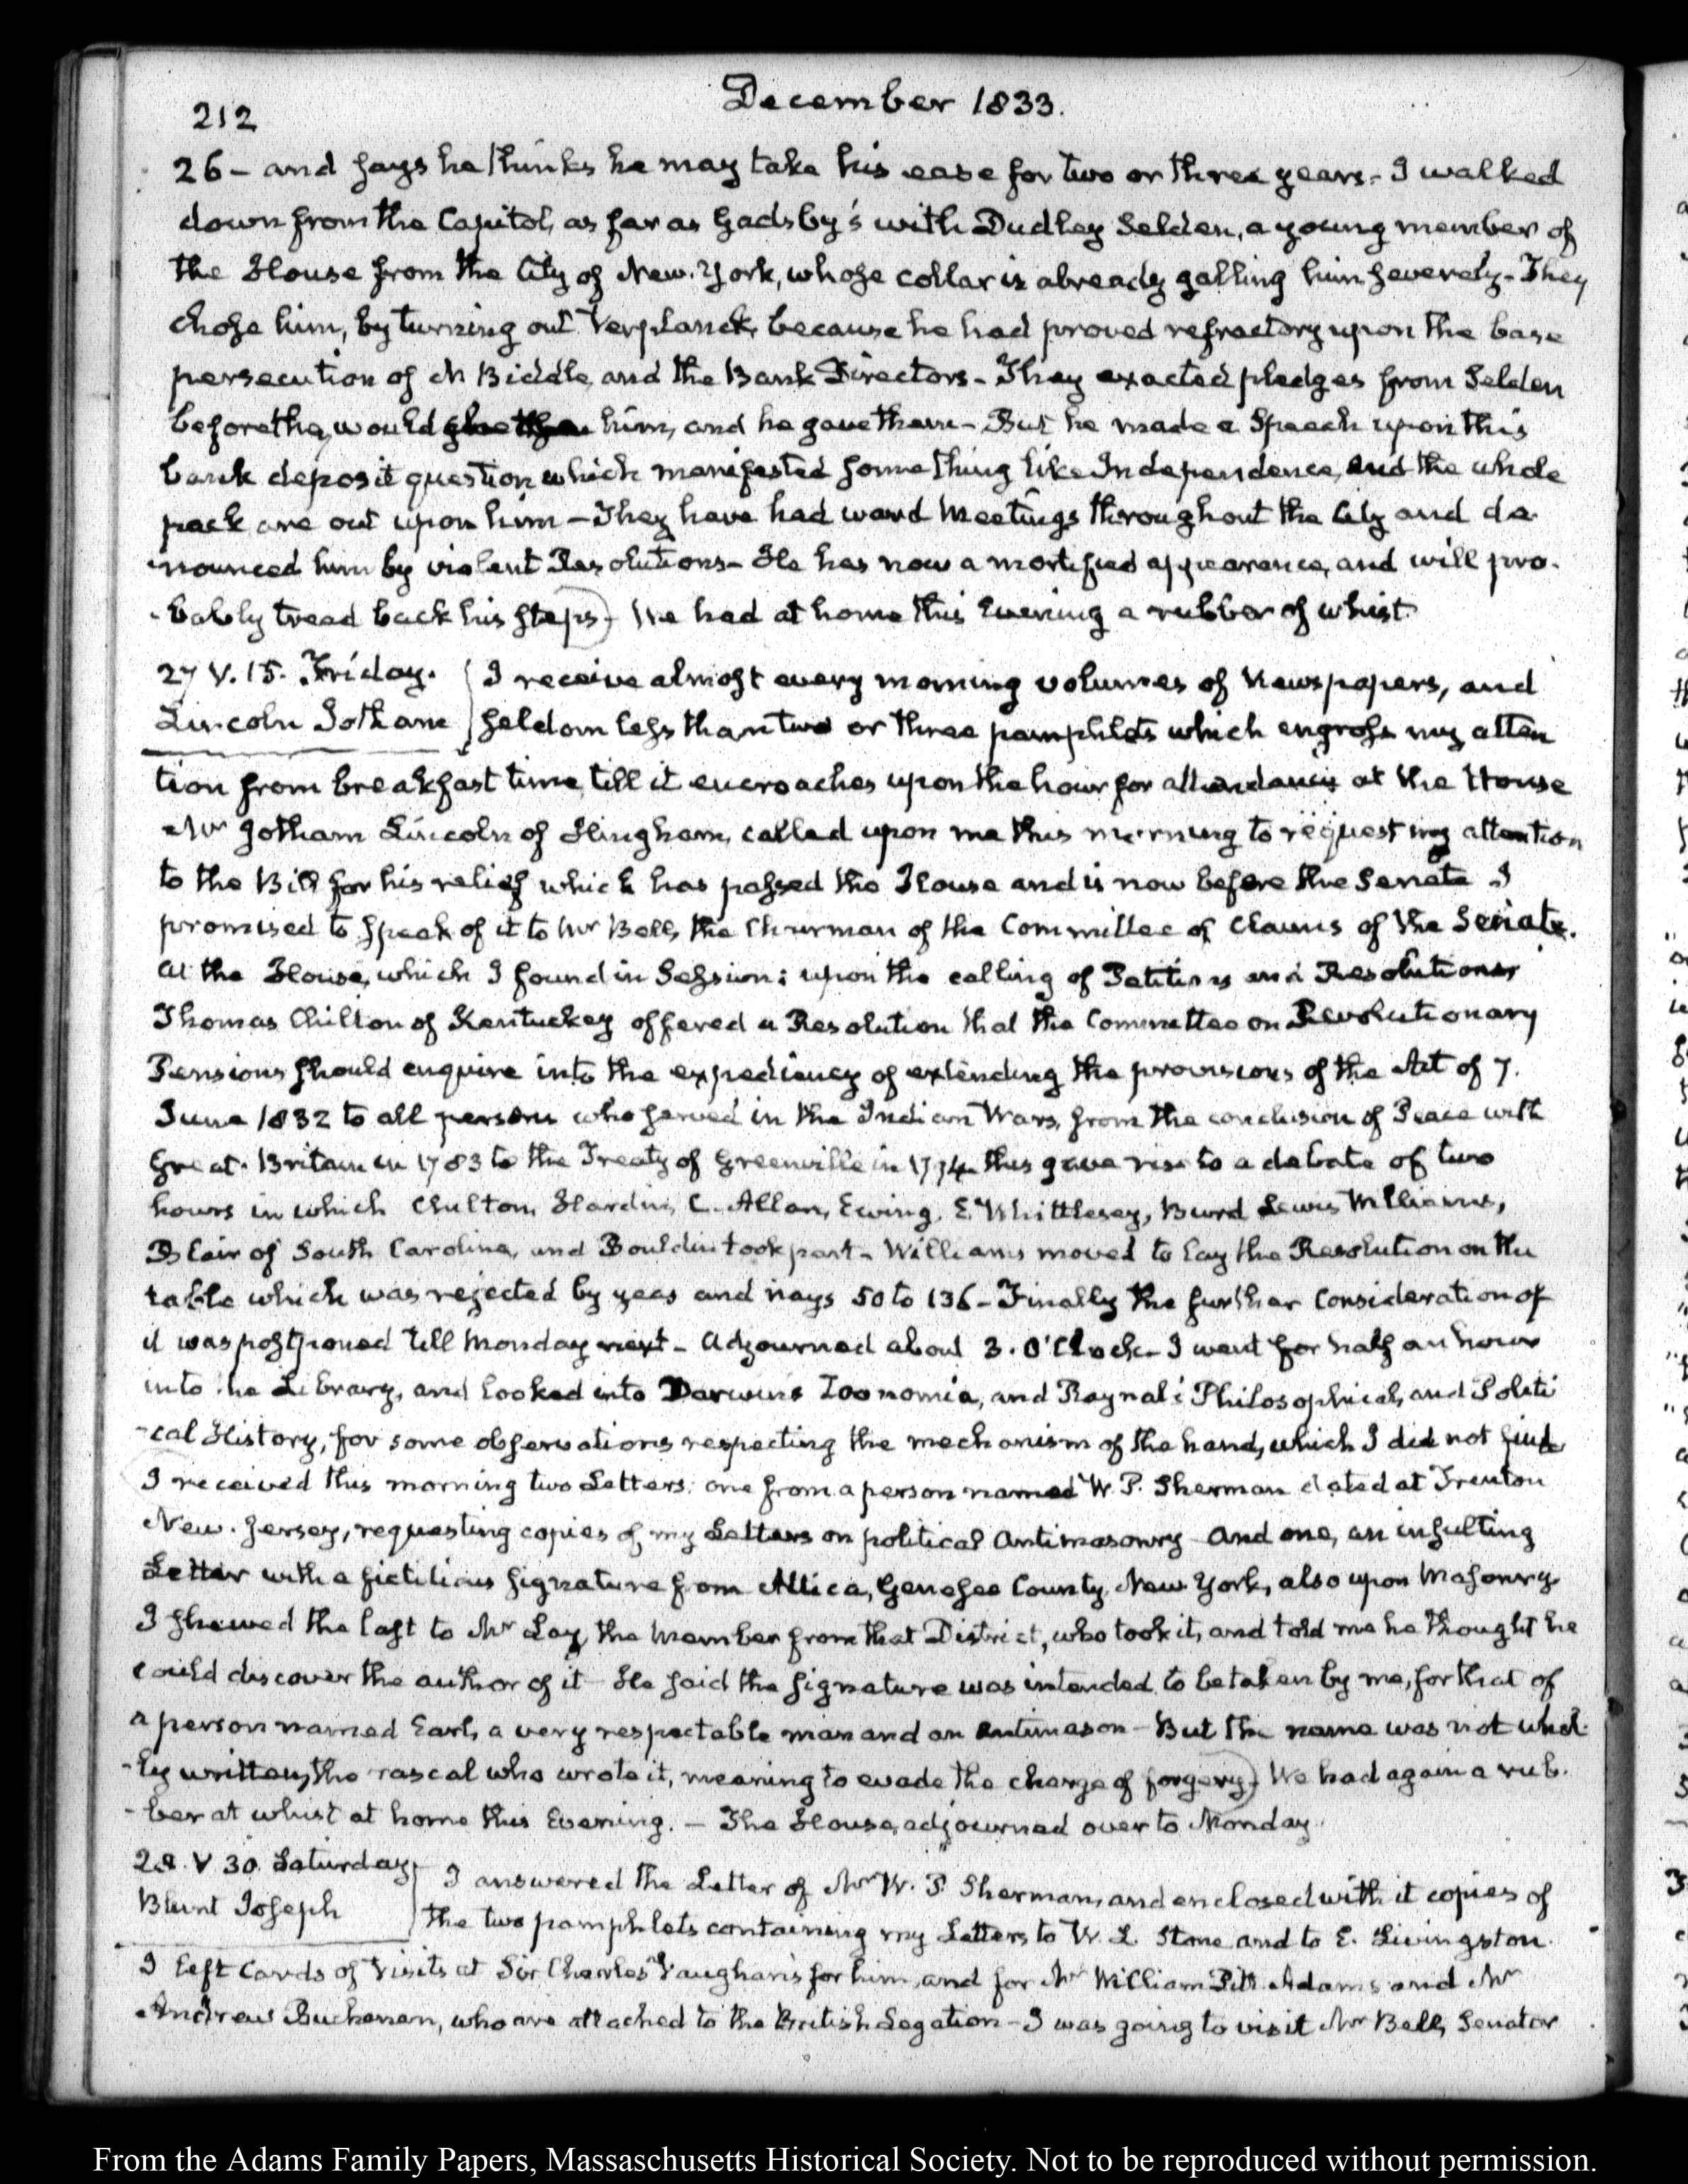 212
December 1833.
26 – and says he thinks he may take his ease for two or three years – I walked
down from the Capitol, as far as Gadsby's with Dudley Selden, a young member of
the House from the City of New-York, whose collar is already galling him severely – They
chose him, by turning out Verplanck, because he had proved refractory upon the base
persecution of N Biddle, and the Bank Directors – They exacted pledges from Selden
before they would him, and he gave them – But he made a Speech upon this
bank deposit question which manifested something like Independence, and the whole
pack are out upon him – They have had ward Meetings throughout the City and de-
-nounced him by violent Resolutions – He has now a mortified appearance, and will pro-
-bably tread back his steps) We had at home this Evening a rubber of whist.
27 V. 15. Friday.
Lincoln Jotham
I receive almost every morning volumes of Newspapers, and
seldom less than two or three pamphlets which engross my atten
tion from breakfast time, till it encroaches upon the hour for attendance at the House
Mr Jotham Lincoln of Hingham, called upon me this morning to request my attention
to the Bill for his relief which has passed the House and is now before the Senate I
promised to speak of it to Mr Bell, the Chairman of the Committee of Claims of the Senate.
At the House, which I found in Session; upon the calling of Petitions and Resolutions
Thomas Chilton of Kentucky offered a Resolution that the Committee on Revolutionary
Pensions should enquire into the expediency of extending the provisions of the Act of 7.
June 1832 to all persons who served in the Indian Wars, from the conclusion of Peace with
Great-Britain in 1783 to the Treaty of Greenville in 1794 this gave rise to a debate of two
hours in which Chilton, Hardin, C. Allan, Ewing, E. Whittlesey, Burd, Lewis Williams,
Blair of South Carolina, and Bouldin took part – Williams moved to lay the Resolution on the
table which was rejected by yeas and nays 50 to 136 – Finally the further Consideration of
it was postponed till Monday next – Adjourned about 3. O'Clock – I went for half an hour
into the Library, and looked into Darwin's Zoonomia, and Raynal's Philosophical, and Politi
-cal History, for some observations respecting the mechanism of the hand, which I did not find
I received this morning two Letters: one from a person named W. P. Sherman dated at Trenton
New-Jersey, requesting copies of my Letters on political Antimasonry – And one, an insulting
Letter with a fictitious signature from Attica, Genesee County, New-York, also upon Masonry
I shewed the last to Mr Lay, the Member from that District, who took it, and told me he thought he
could discover the author of it – He said the signature was intended to be taken by me, for that of
a person named Earl, a very respectable man and an antimason – But the name was not whol-
-ly written, the rascal who wrote it, meaning to evade the charge of forgery.) We had again a rub-
-ber at whist at home this Evening. – The House, adjourned over to Monday.
28. V 30. Saturday.
Blunt Joseph
I answered the Letter of Mr W. P. Sherman, and enclosed with it copies of
the two pamphlets containing my Letters to W. L. Stone and to E. Livingston.
I left Cards of Visits at Sir Charles Vaughan's for him, and for Mr William Pitt Adams and Mr
Andrew Buchanan, who are attached to the British Legation – I was going to visit Mr Bell, Senator
From the Adams Family Papers, Massachusetts Historical Society. Not to be reproduced without permission.